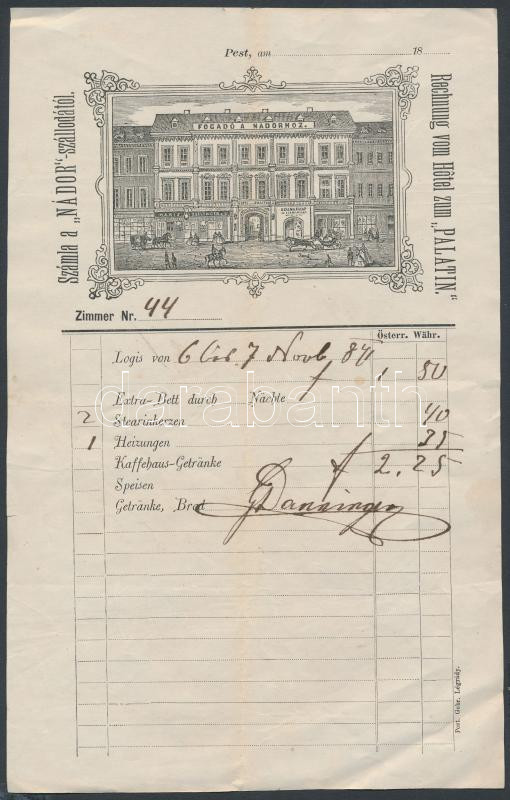 Pest, am 18
Számla a „NÁDOR"-szállodától.
Rechnung vom Hôtel zum „PALATIN."
FOGADÓ A NÁDORHOZ.
Zimmer Nr. 44
Österr. Währ.
Logis von 6 bis 7 Novb 84 f 1 50
Extra-Bett durch Nächte
2 Stearinkerzen 40
1 Heizungen 35
Kaffehaus-Getränke f 2.25
Speisen
Getränke, Brod
darabanth
Pest. Gebr. Légrády.